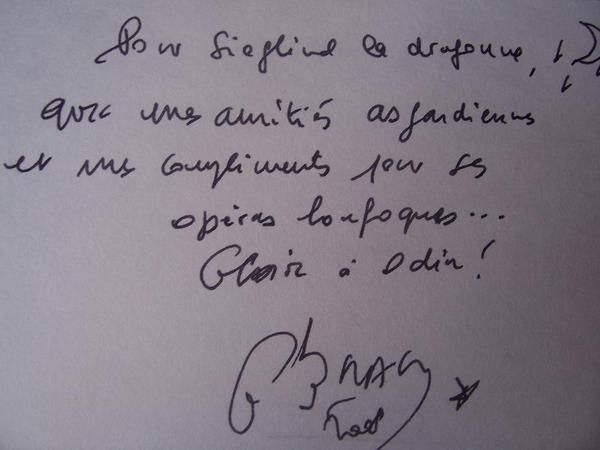 Pour Sieglind la dragonne,
avec mes amitiés asgardiennes
et mes compliments pour ses
opéras loufoques...
Gloire à Odin!